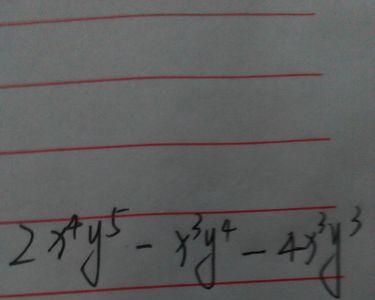 2x⁴y⁵ - x³y⁴ - 4x³y³